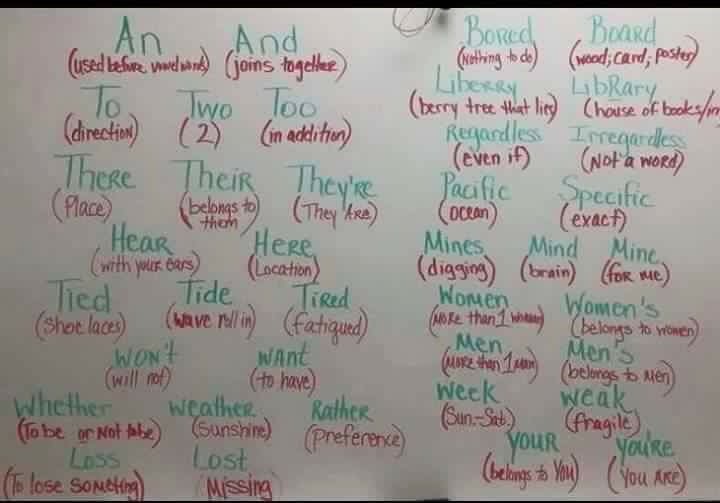 An And
(used before vowel words) (joins together)
To Two Too
(direction) (2) (in addition)
There Their They're
(Place) (belongs to them) (They Are)
Hear Here
(with your ears) (Location)
Tied Tide Tired
(Shoe laces) (wave roll in) (fatigued)
won't want
(will not) (to have)
Whether weather Rather
(To be or Not to be) (Sunshine) (Preference)
Loss Lost
(To lose someting) (Missing)
Bored Board
(Nothing to do) (wood; card; poster)
Liberry Library
(berry tree that lies) (house of books/in
Regardless Irregardless
(even if) (Not a word)
Pacific Specific
(ocean) (exact)
Mines Mind Mine
(digging) (brain) (for me)
Women Women's
(More than 1 woman) (belongs to women)
Men Men's
(More than 1 man) (belongs to Men)
week weak
(Sun.-Sat.) (fragile)
your you're
(belongs to You) (You Are)